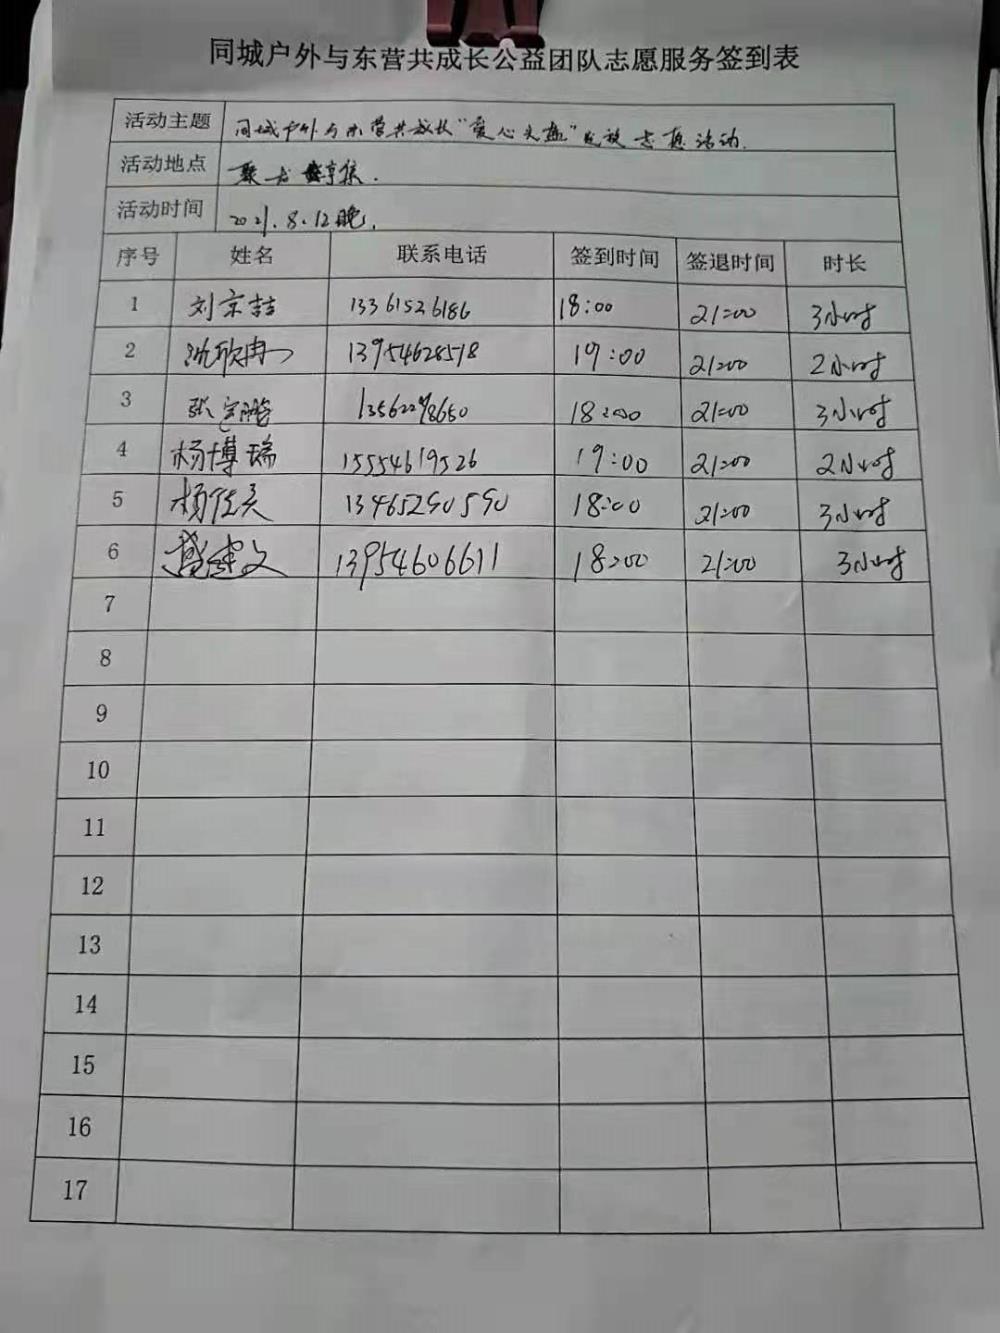 同城户外与东营共成长公益团队志愿服务签到表
活动主题 同城户外与东营共成长“爱心头盔”发放志愿活动.
活动地点
活动时间 2021.8.12晚.
序号 姓名 联系电话 签到时间 签退时间 时长
1 刘京喆 13361526186 18:00 21:00 3小时
2 沈欣冉 13954628518 19:00 21:00 2小时
3 张 18:00 21:00 3小时
4 杨博瑞 15554619526 19:00 21:00 2小时
5 杨 13465290590 18:00 21:00 3小时
6 建文 13954606611 18:00 21:00 3小时
7
8
9
10
11
12
13
14
15
16
17